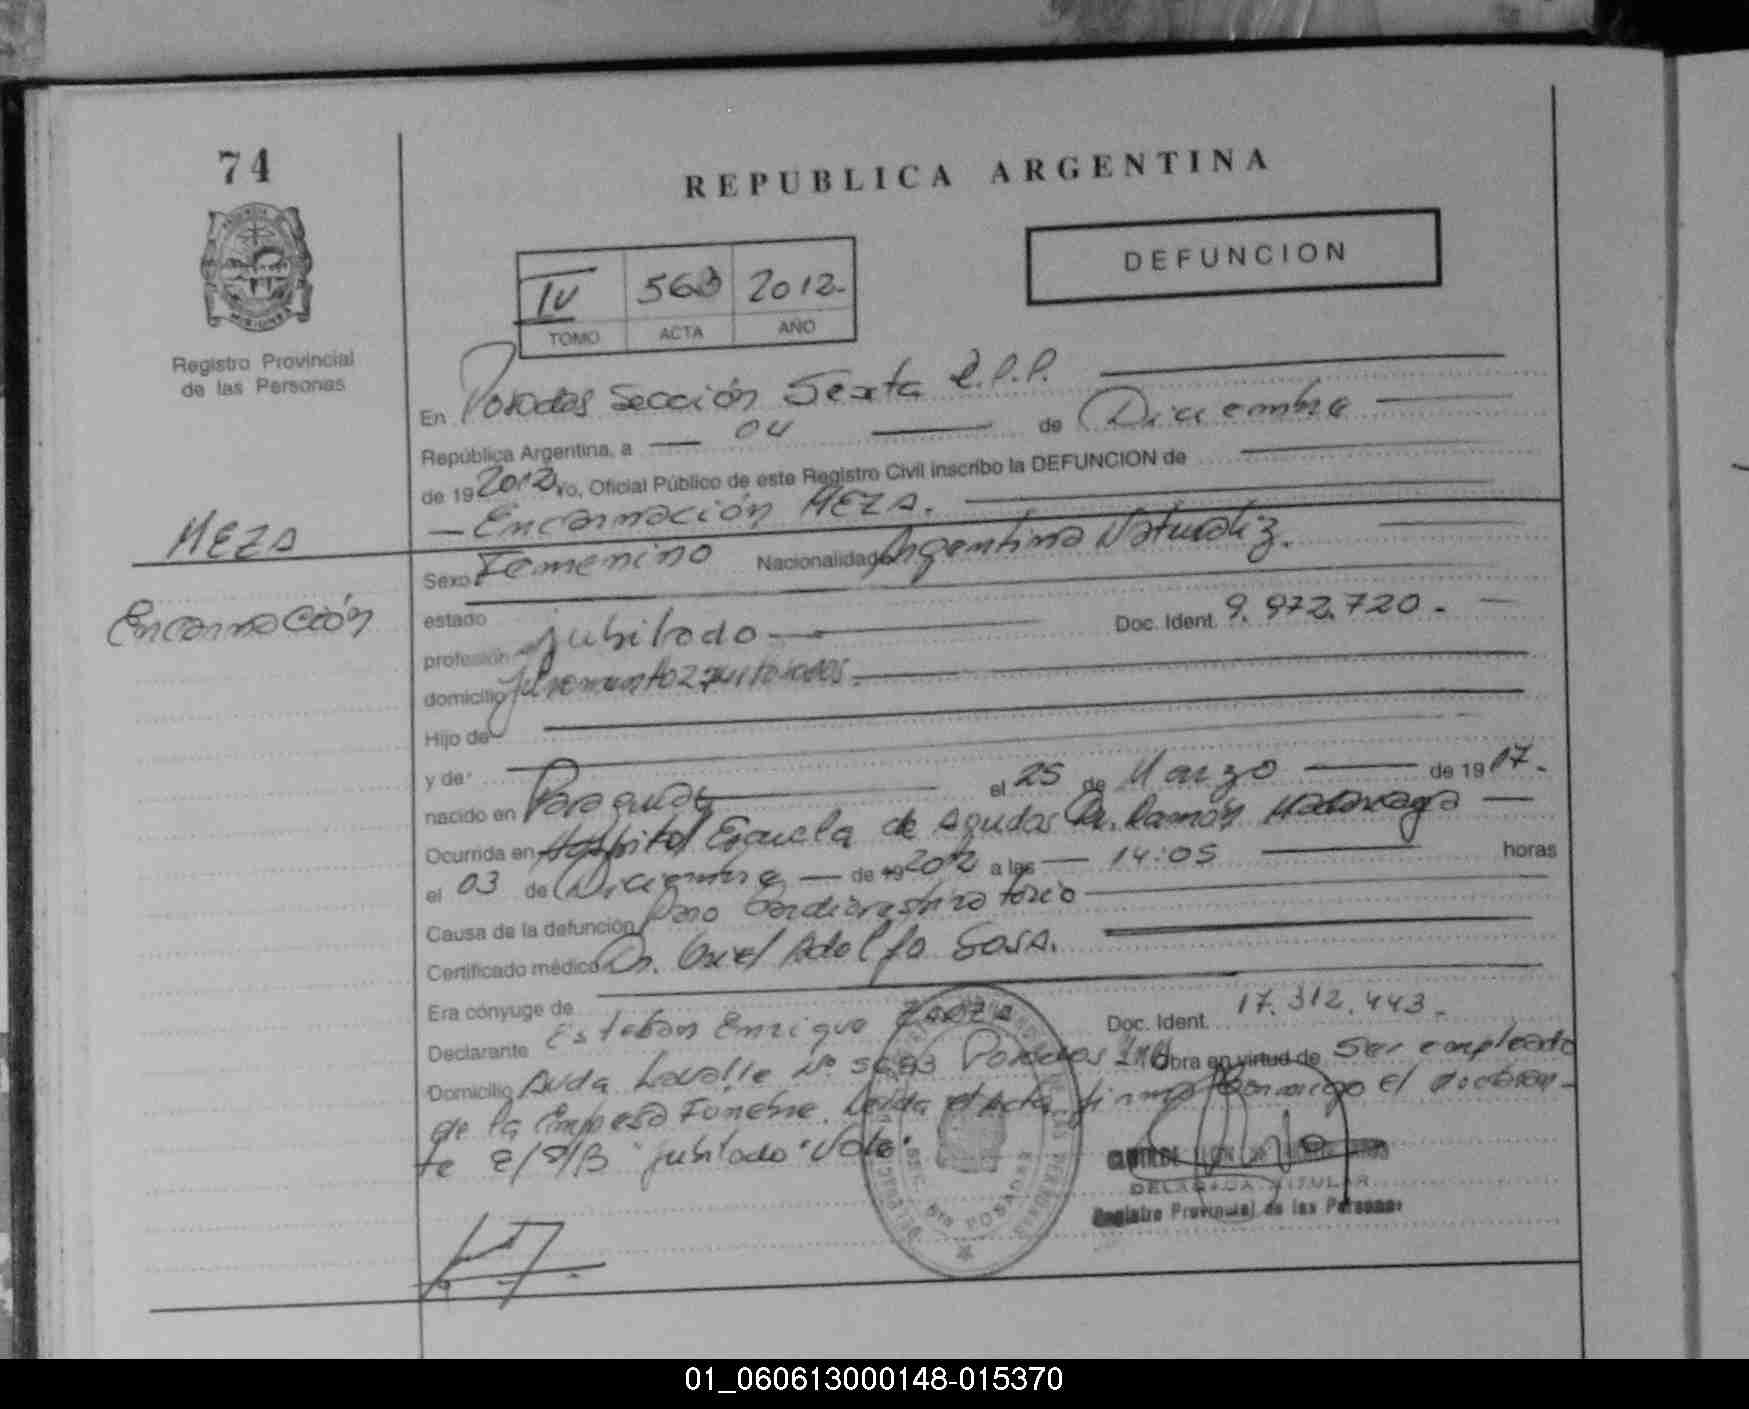 74
REPUBLICA ARGENTINA
DEFUNCION
IV 563 2012.-
TOMO ACTA AÑO
Registro Provincial
de las Personas
En Posadas Sección Sexta R.P.P.
República Argentina, a 04 de Diciembre
de 19 2012 Yo, Oficial Público de este Registro Civil inscribo la DEFUNCION de
Encarnación MEZA.
MEZA
Encarnación
Sexo Femenino Nacionalidad Argentina Naturaliz.
estado
profesión jubilado Doc. Ident. 9.972.720.-
domicilio
Hijo de
y de
nacido en Paraguay el 25 de Marzo de 19 17.-
Ocurrida en Hospital Escuela de Agudos Dr. Ramón Madariaga
el 03 de Diciembre de 19 2012 a las 14:05 horas
Causa de la defunción Paro Cardiorespiratorio
Certificado médico Dr. Adolfo Sosa.
Era cónyuge de
Declarante Esteban Enrique Doc. Ident. 17.312.443.-
Domicilio Avda Lavalle Nº Posadas Obra en virtud de Ser empleado
de la Empresa Fúnebre. Leída el Acta firma conmigo el declaran-
te E/S/B "jubilado" Vale.
DELEGADA TITULAR
Registro Provincial de las Personas
POSADAS
01_060613000148-015370